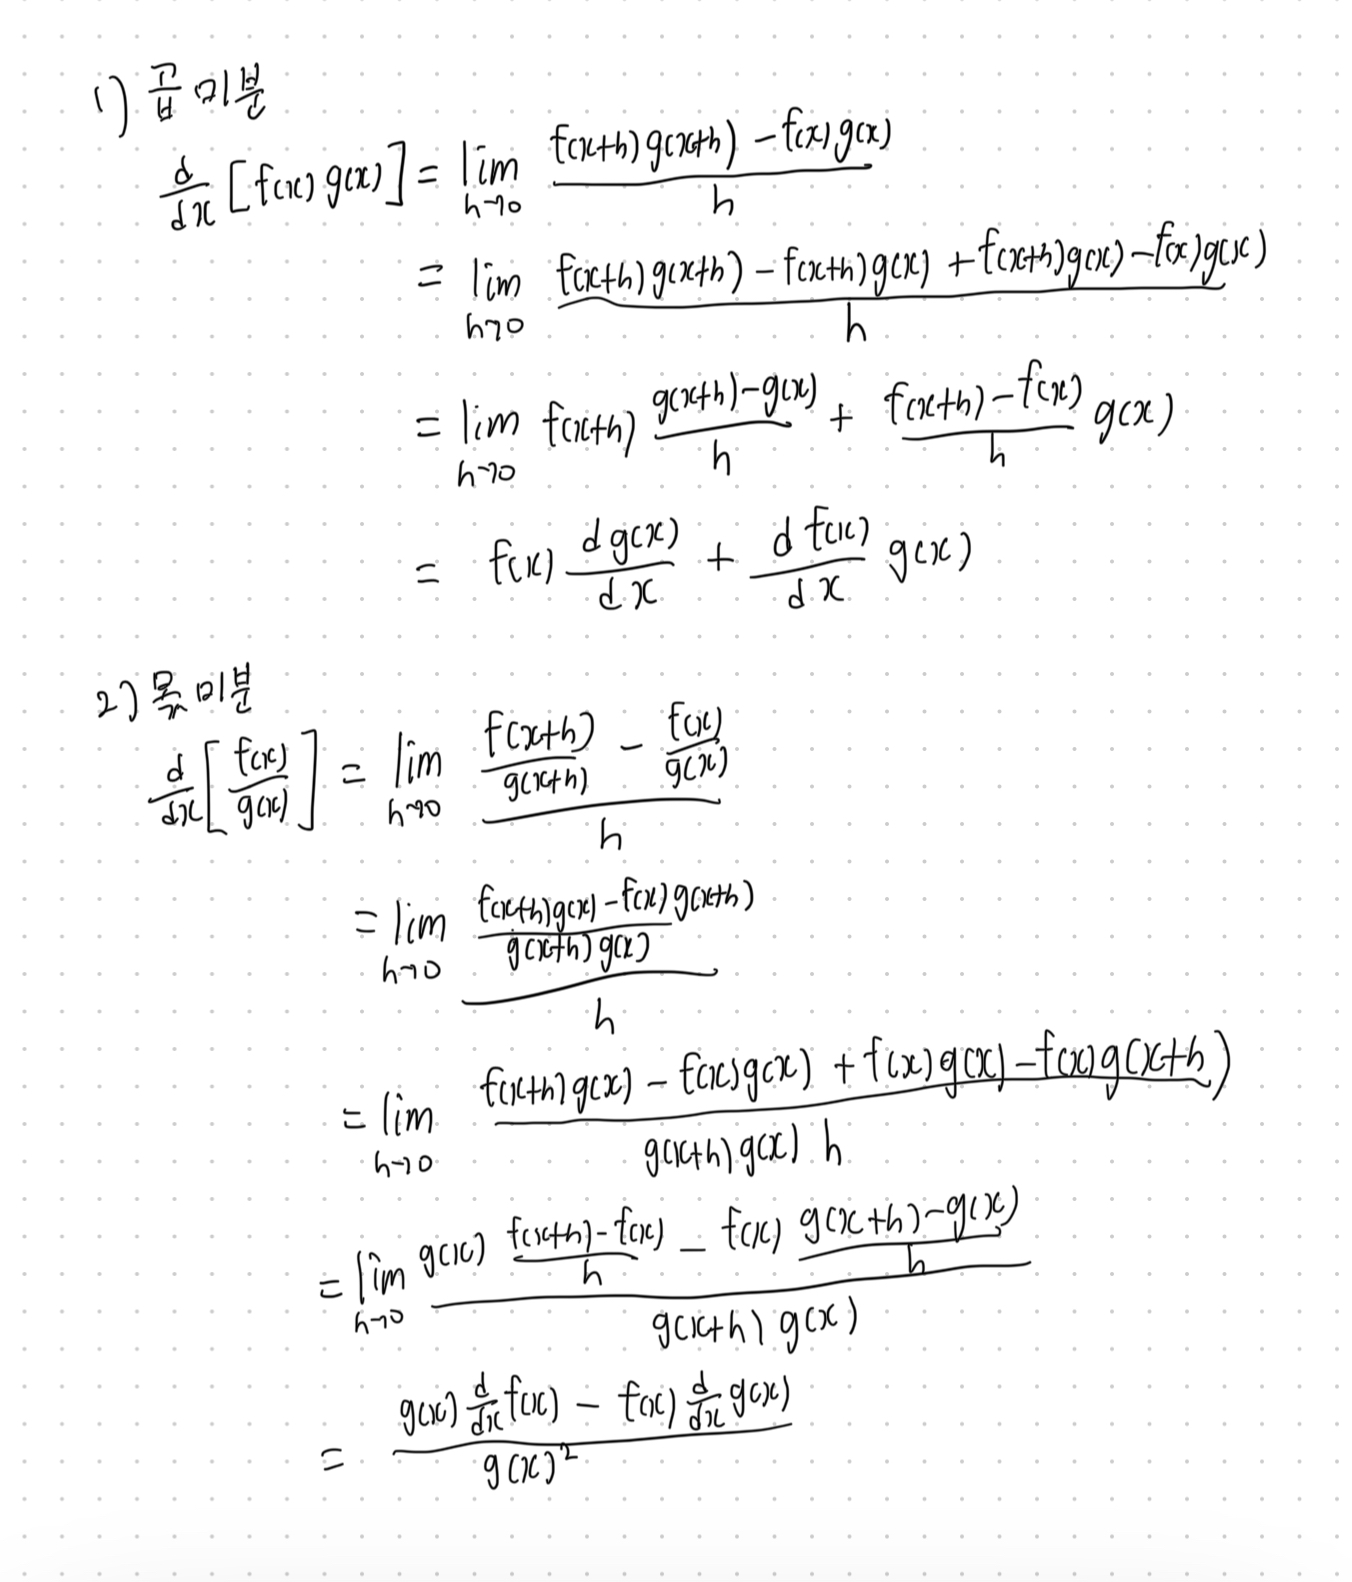 1) 곱미분
d/dx [f(x) g(x)] = lim h→0 (f(x+h) g(x+h) - f(x) g(x)) / h
= lim h→0 (f(x+h) g(x+h) - f(x+h) g(x) + f(x+h) g(x) - f(x) g(x)) / h
= lim h→0 f(x+h) (g(x+h) - g(x)) / h + (f(x+h) - f(x)) / h g(x)
= f(x) dg(x)/dx + df(x)/dx g(x)
2) 몫미분
d/dx [f(x)/g(x)] = lim h→0 (f(x+h)/g(x+h) - f(x)/g(x)) / h
= lim h→0 ((f(x+h) g(x) - f(x) g(x+h)) / (g(x+h) g(x))) / h
= lim h→0 (f(x+h) g(x) - f(x) g(x) + f(x) g(x) - f(x) g(x+h)) / (g(x+h) g(x) h)
= lim h→0 (g(x) (f(x+h) - f(x)) / h - f(x) (g(x+h) - g(x)) / h) / (g(x+h) g(x))
= (g(x) d/dx f(x) - f(x) d/dx g(x)) / g(x)²